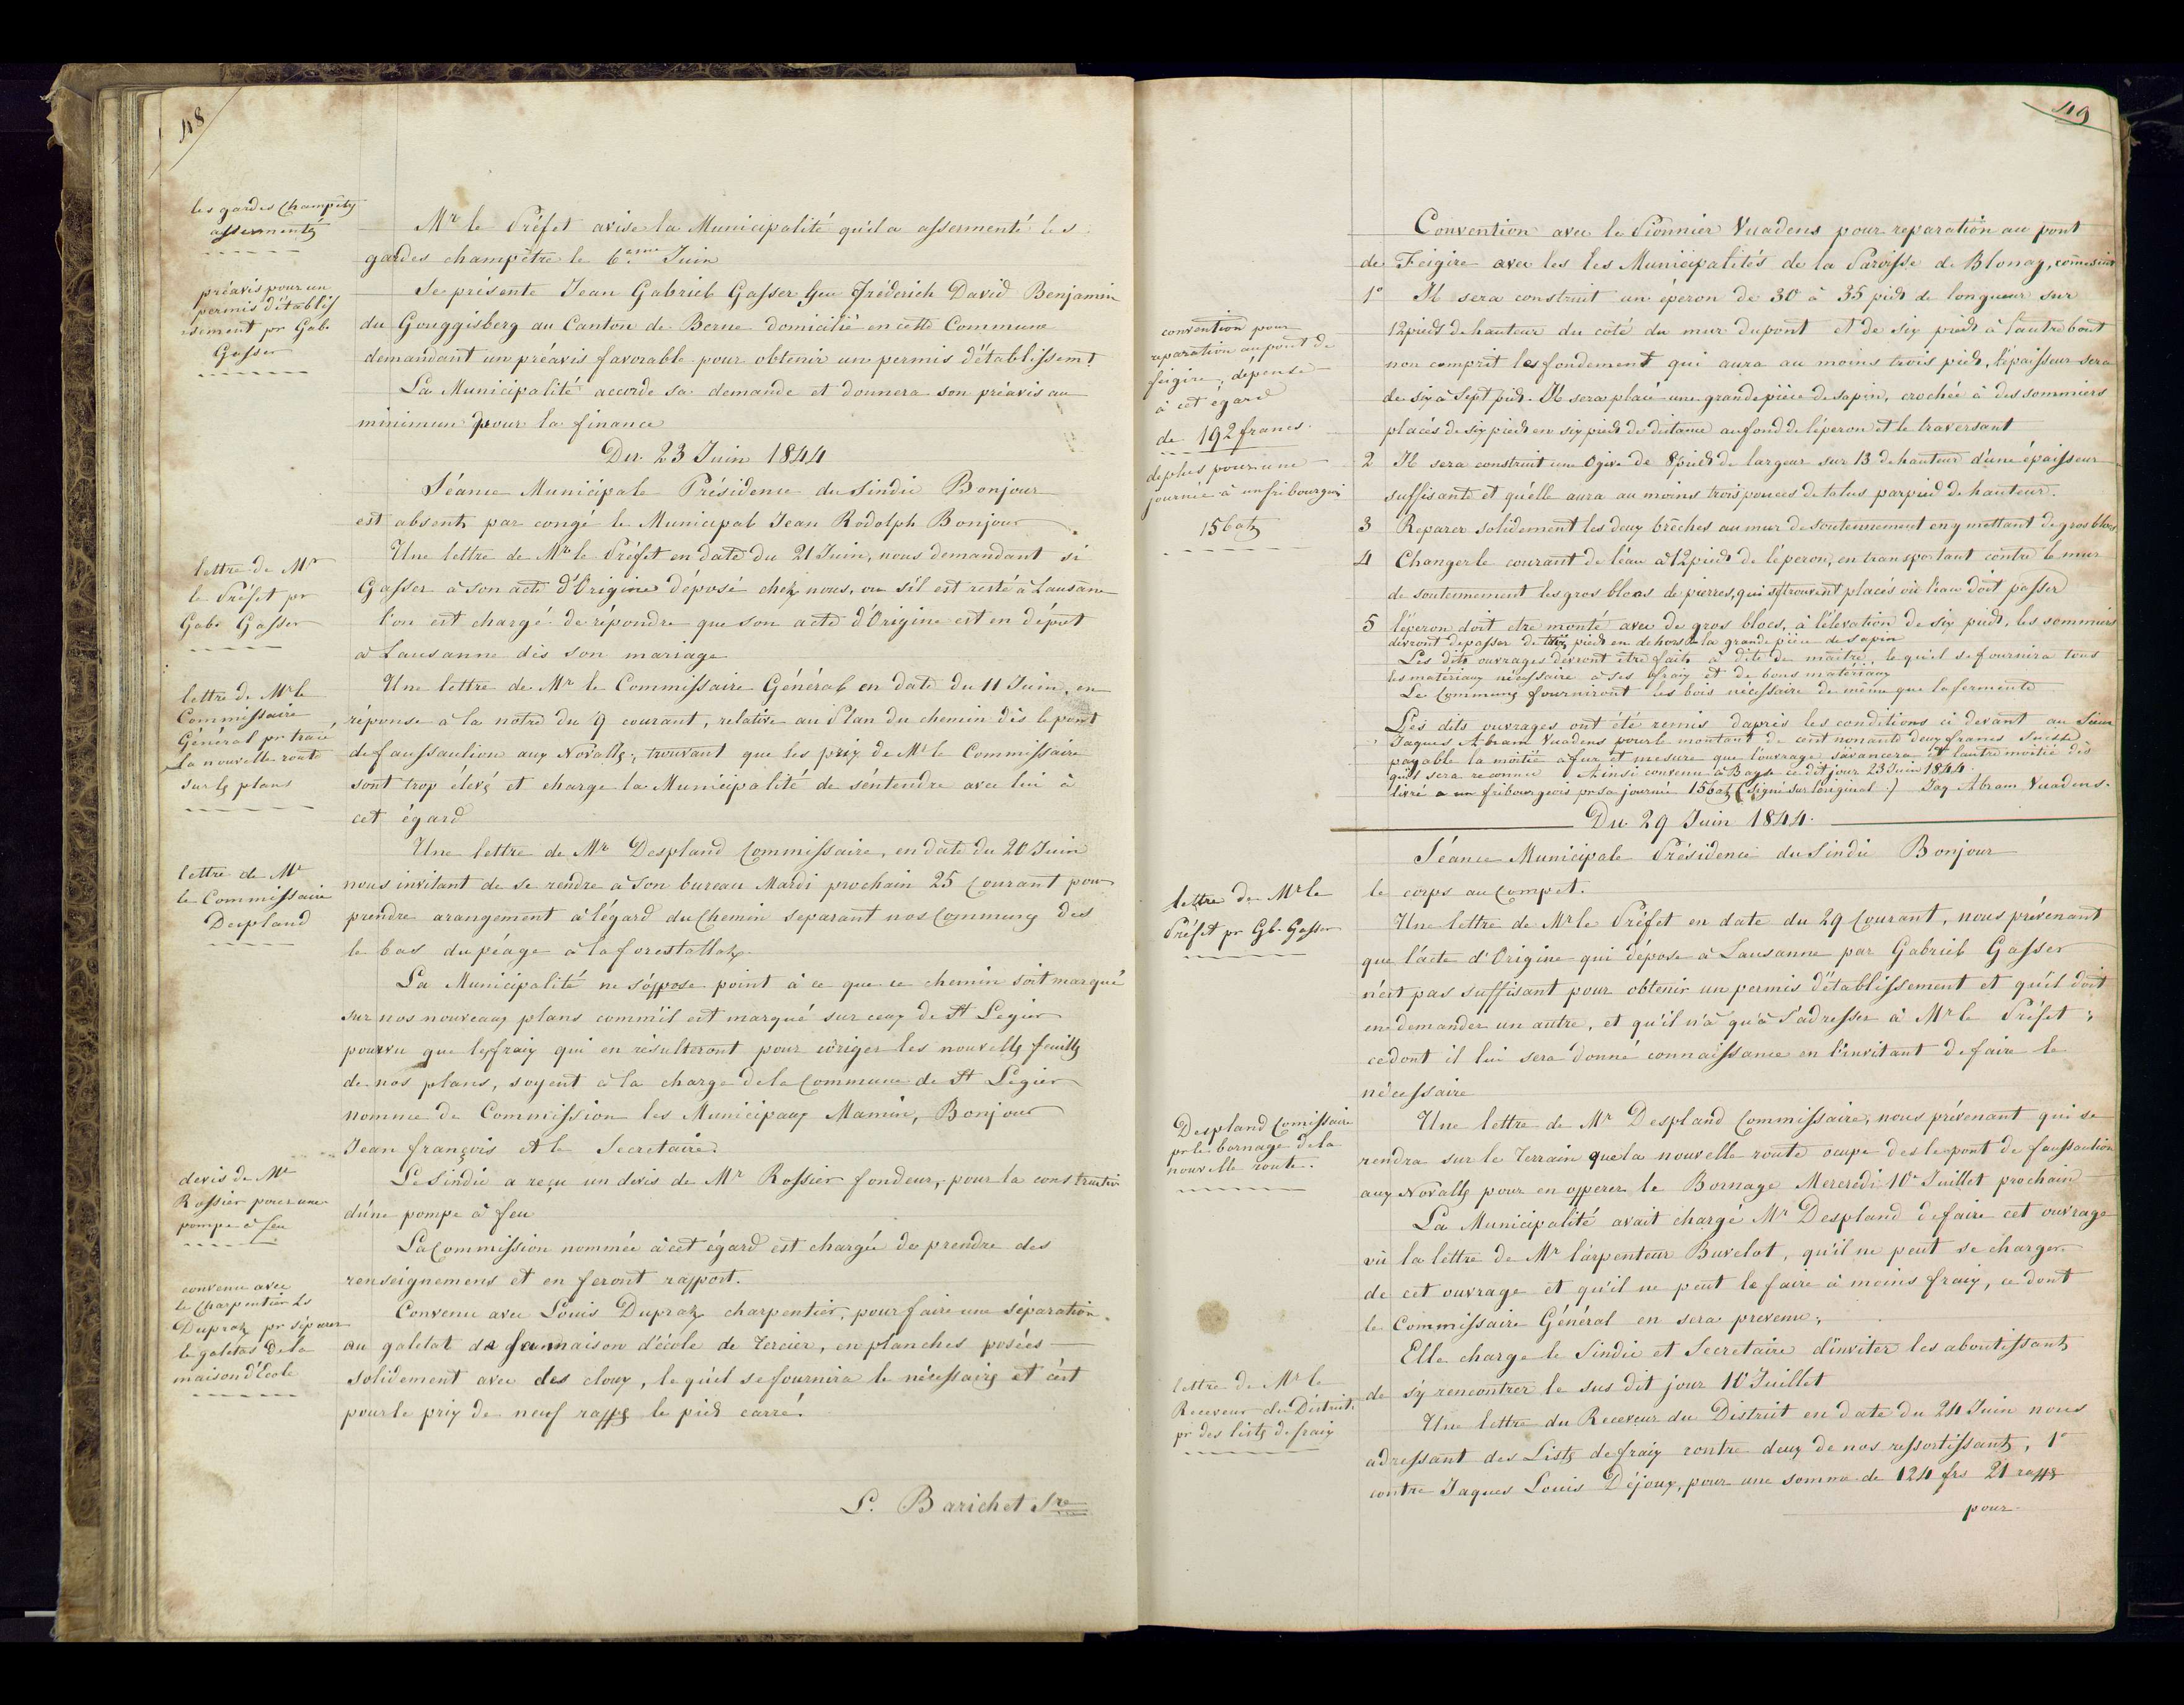 48
les gardes Champêts
assermentés
Mr. le Préfet avise la Municipalité qu'il a assermenté les
gardes champêtre le 6.eme Juin
préavis pour un
permis d'établis
sement pr Gab.
Gasser
Se présente Jean Gabriel Gasser feu Fréderich David Benjamin
du Gouggisberg au Canton de Berne domicilié en cette Commune
demandant un préavis favorable pour obtenir un permis d'établissemt.
La Municipalité accorde sa demande et donnera son préavis au
minimum pour la finance
Du 23 Juin 1844
Séance Municipale Présidence du Sindic Bonjour
est absent par congé le Municipal Jean Rodolph Bonjour
lettre de Mr
le Préfet pr
Gab. Gasser
Une lettre de Mr le Préfet en date du 21 Juin, nous demandant si
Gasser à son acte d'Origine déposé chez nous, ou s'il est resté à Lausane
l'on est chargé de répondre que son acte d'Origine est en dépot
à Lausanne dès son mariage
lettre de Mr le
Commissaire
Général pr tracé
la nouvelle route
sur ls plans
Une lettre de Mr le Commissaire Général en date du 11 Juin, en
réponse à la notre du 9 courant, relative au Plan du chemin dès le pont
de faussaulion aux Novalls; trouvant que les prix de Mr le Commissaire
sont trop élévs et charge la Municipalité de s'entendre avec lui à
cet égard
lettre de Mr
le Commissaire
Despland
Une lettre de Mr Despland Commissaire, en date du 20 Juin
nous invitant de se rendre à son bureau Mardi prochain 25 Courant pour
prendre arangement à l'égard du Chemin separant nos Communs dès
le bas du péage à la forestallaz.
La Municipalité ne s'oppose point à ce que ce chemin soit marqué
sur nos nouveaux plans comm'il est marqué sur ceux de St Legier
pourvu que les fraix qui en résulteront pour coriger les nouvells feuills
de nos plans, soyent à la charge de la Commune de St Legier
nomme de Commission les Municipaux Mamin, Bonjour
Jean françois et le Secretaire.
devis de Mr
Rossier pour une
pompe à feu
Le Sindic a reçu un devis de Mr Rossier fondeur, pour la construction
d'une pompe à feu
La Commission nommée à cet égard est chargée de prendre des
renseignemens et en feront rapport.
convenu avec
le Charpentier Ls
Dupraz pr séparer
le galetas de la
maison d'Ecole
Convenu avec Louis Dupraz charpentier, pour faire une séparation
au galetat de la maison d'école de Tercier, en planches posées
solidement avec des cloux, lequ'el se fournira le nécessaire et c'est
pour le prix de neuf rapps le pied carré.
L. Barichet Sre
49
Convention avec le Pionnier Vuadens pour reparation au pont
de Feigire avec les les Municipalités de la Paroisse de Blonay, come suit
convention pour
reparation au pont de
feigire, dépense
à cet égard
de 192 francs.
de plus pour une
journée à un fribourgeois
15 batz
1° Il sera construit un éperon de 30 à 35 pieds de longueur sur
12 pieds de hauteur du côté du mur du pont et de six pieds à l'autre bout
non comprit les fondement qui aura au moins trois pieds, l'épaisseur sera
de six à sept pieds. Il sera placé une grande pièce de sapin, crochée à des sommiers
placés de six pieds en six pieds de distance au fond de l'éperon et le traversant
2 Il sera construit une Ogive de 8 pieds de largeur sur 13 de hauteur d'une épaisseur
suffisante et qu'elle aura au moins trois pouces de talus par pied de hauteur.
3 Reparer solidement les deux brêches au mur de soutennement en y mettant de gros blocs
4 Changer le courant de l'eau à 12 pieds de l'éperon, en transportant contre le mur
de soutennement les gros blocs de pierres, qui se trouvent placés où l'eau doit passer
5 l'éperon doit etre monté avec de gros blocs, à l'élévation de six pieds, les sommiers
devront depasser de trois pieds en dehors de la grande pièce de sapin
Les dits ouvrages devront être faits à dite de maitre, lequ'el se fournira tous
les matériaux nécessaire à ses fraix et de bons matériaux
Les Communs fourniront les bois nécessaire de même que la fermente
Les dits ouvrages ont été remis d'après les conditions ci devant au Sieur
Jaques Abram Vuadens pour le montant de cent nonante deux francs suisse
payable la moitié à fur et mesure que l'ouvrage s'avancera et l'autre moitié dès
qu'il sera reconnu Ainsi convenu à Bays ce dit jour 23 Juin 1844.
livré a un fribourgeois pr sa journée 15 batz (signé sur l'original.) Jaq Abram Vuadens.
Du 29 Juin 1844.
Séance Municipale Présidence du Sindic Bonjour
le corps au Compet.
lettre de Mr le
Préfet pr Gb. Gasser
Une lettre de Mr le Préfet en date du 29 Courant, nous prévenant
que l'acte d'Origine qui dépose à Lausanne par Gabriel Gasser
n'est pas suffisant pour obtenir un permis d'établissement et qu'il doit
en demander un autre, et qu'il n'à qu'à s'adresser à Mr le Préfet;
ce dont il lui sera donné connaissance en l'invitant de faire le
nécessaire
Despland Comissaire
pr le bornage de la
nouvelle route.
Une lettre de Mr Despland Commissaire, nous prévenant qui se
rendra sur le Terrain que la nouvelle route ocupe dès le pont de faussaulion
aux Novalls pour en opperer le Bornage Mercredi 10e Juillet prochain
La Municipalité avait chargé Mr Despland de faire cet ouvrage
vû la lettre de Mr l'arpenteur Buvelot, qu'il ne peut se charger
de cet ouvrage et qu'il ne peut le faire à moins fraix, ce dont
le Commissaire Général en sera prevenu;
Elle charge le Sindic et Secretaire d'inviter les aboutissants
de s'y rencontrer le sus dit jour 10 Juillet
lettre de Mr le
Receveur du District.
pr des lists de fraix
Une lettre du Receveur du District en date du 24 Juin nous
adressant des Lists de fraix contre deux de nos ressortissants, 1°
contre Jaques Louis Déjoux, pour une somme de 124 frs 21 rapps
pour